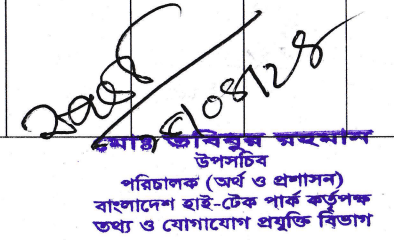 মোঃ
রহমান
উপসচিব
পরিচালক (অর্থ ও প্রশাসন)
বাংলাদেশ হাই-টেক পার্ক কর্তৃপক্ষ
তথ্য ও যোগাযোগ প্রযুক্তি বিভাগ